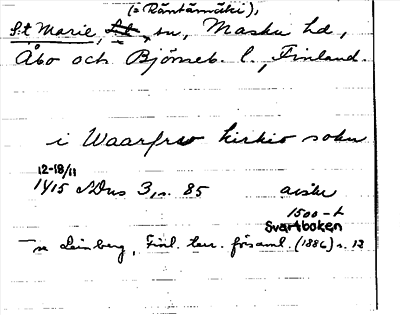 (= Räntämäki),
S:t Marie, sn, Masku hd,
Åbo och Björneb. l., Finland.
i Waarfrw kirkio sokn
12-18/11
1415 ADus 3, s. 85 avskr
1500-t
Svartboken
se Leinberg, Finl. terr. församl. (1886) s. 12